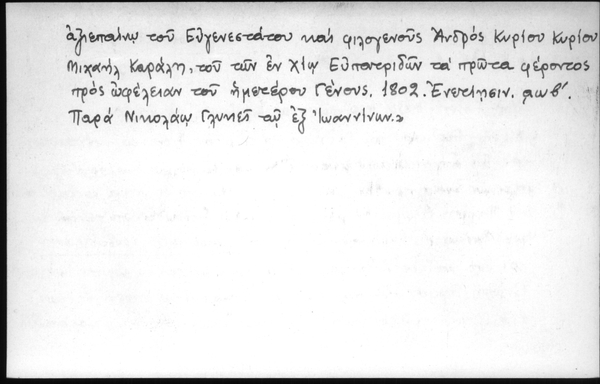 ἀξιεπαίνῳ τοῦ Εὐγενεστάτου καί φιλογενοῦς Ἀνδρός Κυρίου Κυρίου
Μιχαήλ Καράλη, τοῦ τῶν ἐν Χίῳ Εὐπατριδῶν τά πρῶτα φέροντος
πρός ὠφέλειαν τοῦ ἡμετέρου Γένους. 1802. Ἐνετίησιν. αωβ΄.
Παρά Νικολάῳ Γλυκεῖ τῷ ἐξ Ἰωαννίνων.»